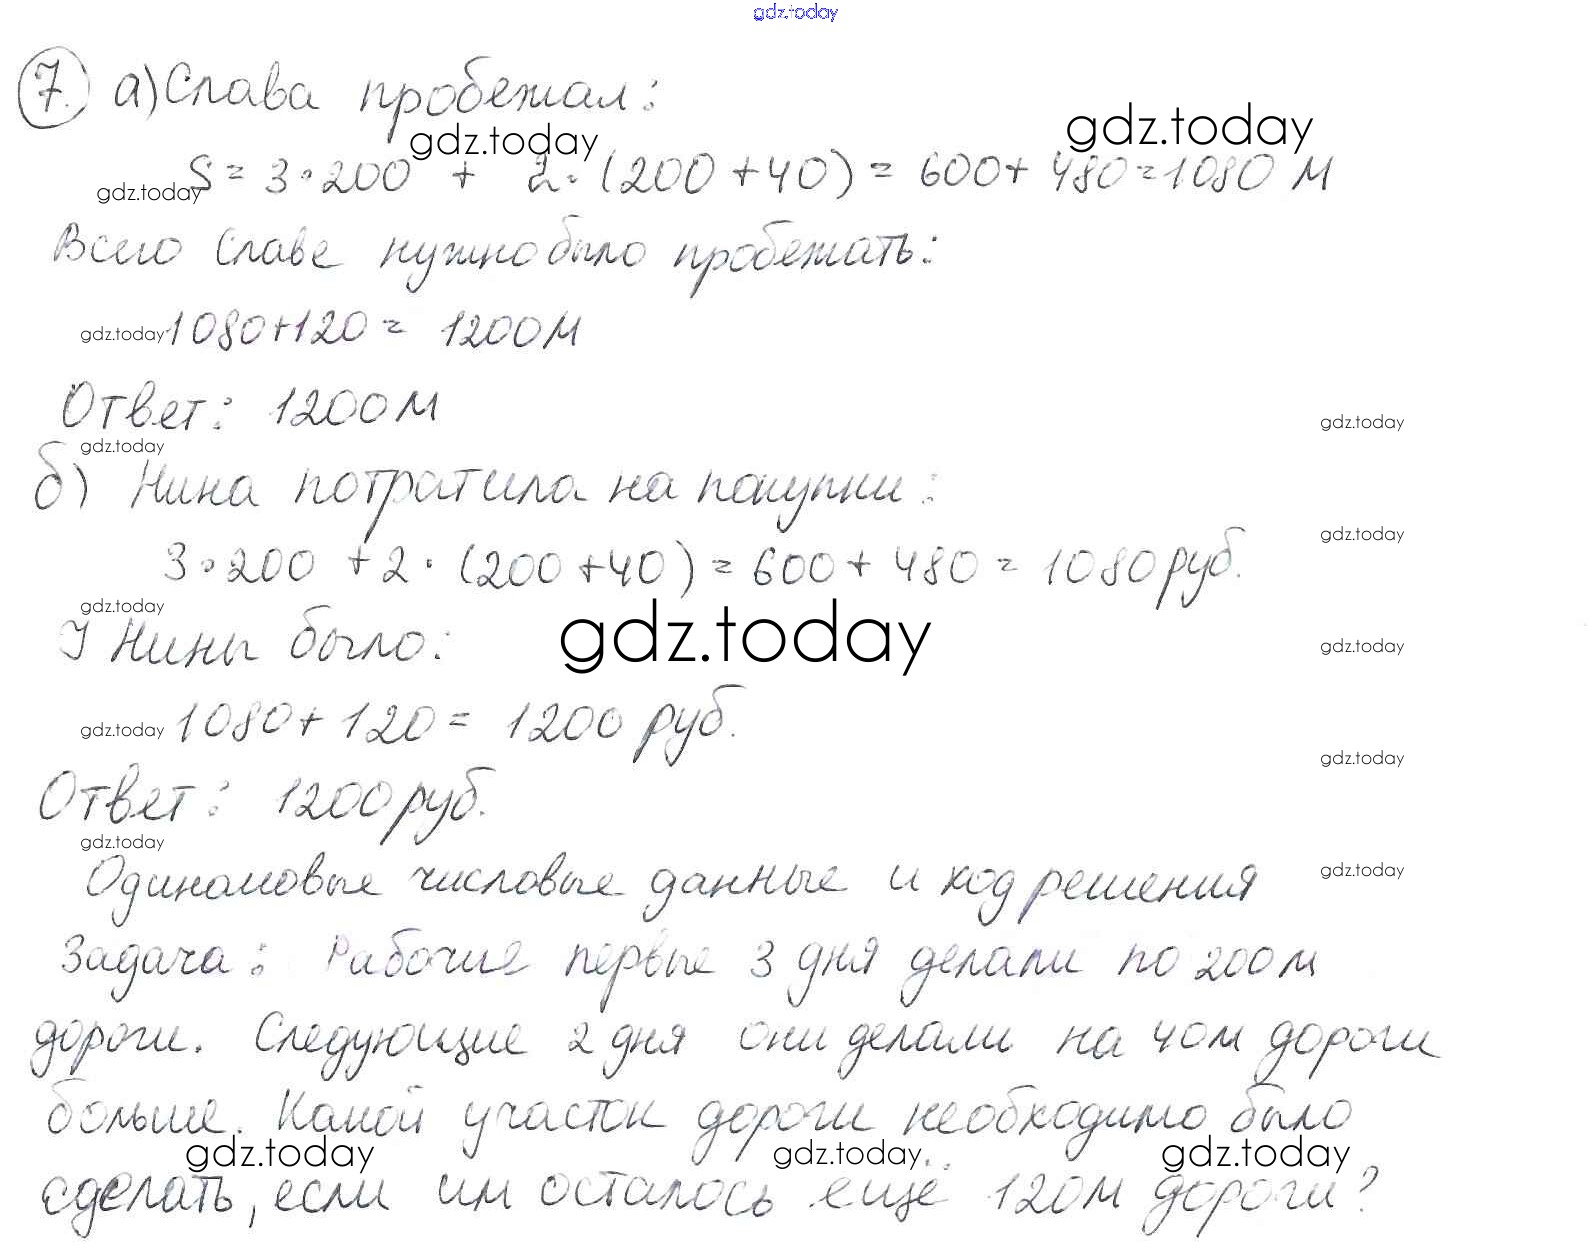 gdz.today
7. а) Слава пробежал:
gdz.today gdz.today
gdz.today S = 3 • 200 + 2 • (200 + 40) = 600 + 480 = 1080 м
Всего Славе нужно было пробежать:
gdz.today 1080 + 120 = 1200 м
Ответ: 1200 м
gdz.today gdz.today
б) Нина потратила на покупки:
gdz.today
3 • 200 + 2 • (200 + 40) = 600 + 480 = 1080 руб.
gdz.today
У Нины было: gdz.today gdz.today
gdz.today 1080 + 120 = 1200 руб.
gdz.today
Ответ: 1200 руб.
gdz.today gdz.today
Одинаковые числовые данные и ход решения
Задача: Рабочие первые 3 дня делали по 200 м
дороги. Следующие 2 дня они делали на 40 м дороги
больше. Какой участок дороги необходимо было
gdz.today gdz.today gdz.today
сделать, если им осталось ещё 120 м дороги?